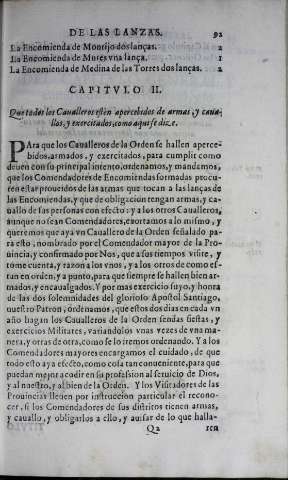 DE LAS LANZAS. 92
La Encomienda de Montijo dos lanças. 2
La Encomienda de Mures vna lança. 1
La Encomienda de Medina de las Torres dos lanças. 2
CAPITVLO II.
Que todos los Caualleros estèn apercebidos de armas, y caua-
llos, y exercitados, como aqui se dize.
PAra que los Caualleros de la Orden se hallen aperce-
bidos, armados, y exercitados, para cumplir como
deuen con su principal intento, ordenamos, y mandamos,
que los Comendadores de Encomiendas formadas procu-
ren estar proueidos de las armas que tocan a las lanças de
las Encomiendas, y que de obligacion tengan armas, y ca-
uallo de sus personas con efecto: y a los otros Caualleros,
aunque no sean Comendadores, exortamos a lo mismo, y
queremos que aya vn Cauallero de la Orden señalado pa-
ra esto, nombrado por el Comendador mayor de la Pro-
uincia, y confirmado por Nos, que a sus tiempos visite, y
tome cuenta, y razon a los vnos, y a los otros de como es-
tan en orden, y a punto, para que siempre se hallen bien ar-
mados, y encaualgados. Y por mas exercicio suyo, y honra
de las dos solemnidades del glorioso Apostol Santiago,
nuestro Patron, ordenamos, que estos dos dias en cada vn
año hagan los Caualleros de la Orden sendas fiestas, y
exercicios Militares, variandolos vnas vezes de vna ma-
nera, y otras de otra, como se lo iremos ordenando. Y a los
Comendadores mayores encargamos el cuidado, de que
todo esto aya efecto, como cosa tan conueniente, para que
puedan mejor acudir en su profession al seruicio de Dios,
y al nuestro, y al bien de la Orden. Y los Visitadores de las
Prouincias lleuen por instruccion particular el recono-
cer, si los Comendadores de sus distritos tienen armas,
y cauallo, y obligarlos a ello, y auisar de lo que halla-
Q2 ren